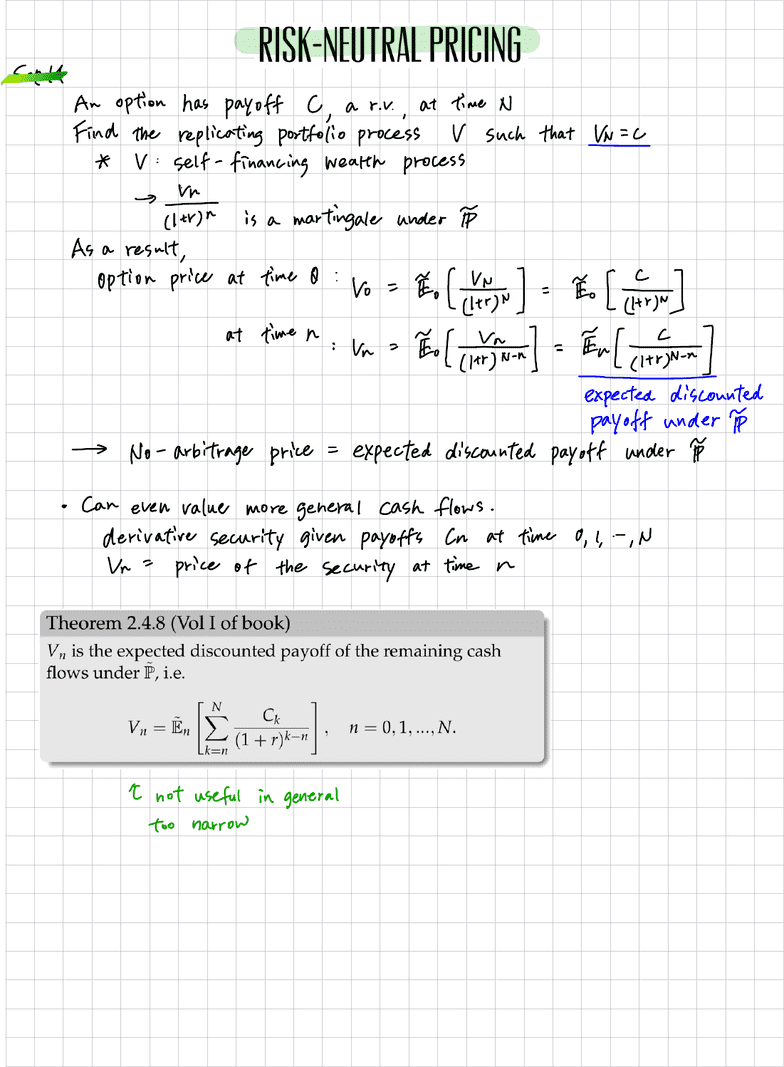 RISK-NEUTRAL PRICING
An option has payoff C, a r.v., at time N
Find the replicating portfolio process V such that V_N = C
* V : self-financing wealth process
→ V_n / (1+r)^n is a martingale under P̃
As a result,
option price at time 0 : V_0 = Ẽ_0 [ V_N / (1+r)^N ] = Ẽ_0 [ C / (1+r)^N ]
at time n : V_n = Ẽ_0 [ V_n / (1+r)^{N-n} ] = Ẽ_n [ C / (1+r)^{N-n} ]
expected discounted
payoff under P̃
→ No-arbitrage price = expected discounted payoff under P̃
• Can even value more general cash flows.
derivative security given payoffs C_n at time 0, 1, …, N
V_n = price of the security at time n
Theorem 2.4.8 (Vol I of book)
V_n is the expected discounted payoff of the remaining cash
flows under P̃, i.e.
V_n = Ẽ_n [ ∑_{k=n}^{N} C_k / (1 + r)^{k−n} ] , n = 0, 1, ..., N.
↑ not useful in general
too narrow